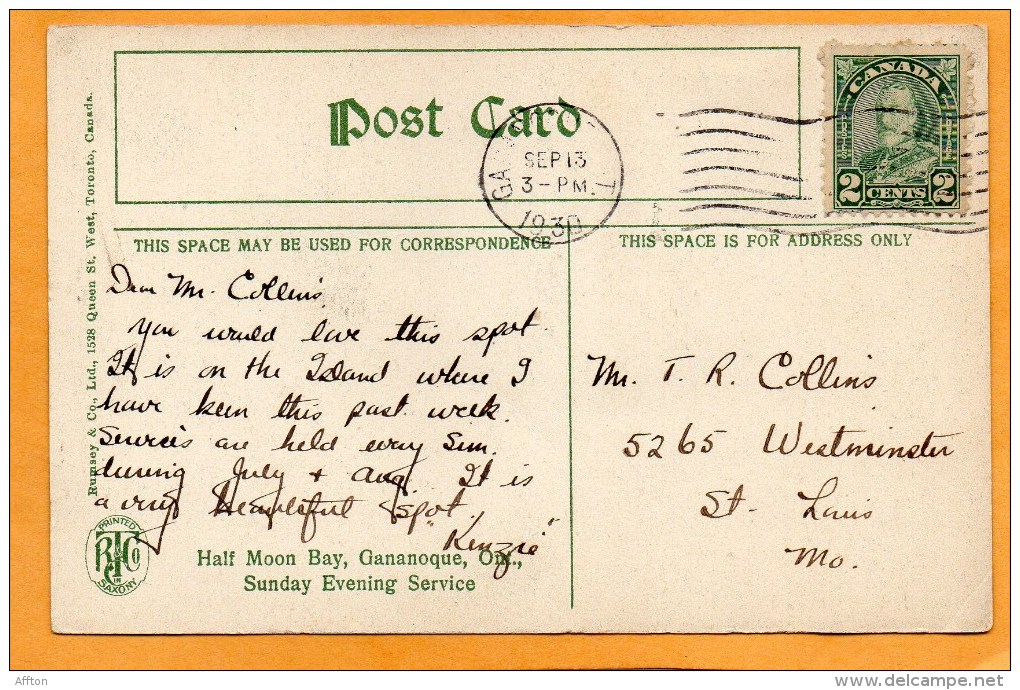 Post Card
CANADA
2 CENTS 2
SEP 13
3-PM.
1930
THIS SPACE MAY BE USED FOR CORRESPONDENCE
THIS SPACE IS FOR ADDRESS ONLY
Rumsey & Co., Ltd., 1528 Queen St. West, Toronto, Canada.
Dear Mr. Collins
You would love this spot.
It is on the Island where I
have been this past week.
Services are held every Sun.
during July & Aug. It is
a very beautiful spot.
"Kenzie"
Mr. T. R. Collins
5265 Westminster
St. Louis
Mo.
PRINTED
IN
SAXONY
Half Moon Bay, Gananoque, Ont.,
Sunday Evening Service
Affton
www.delcampe.net